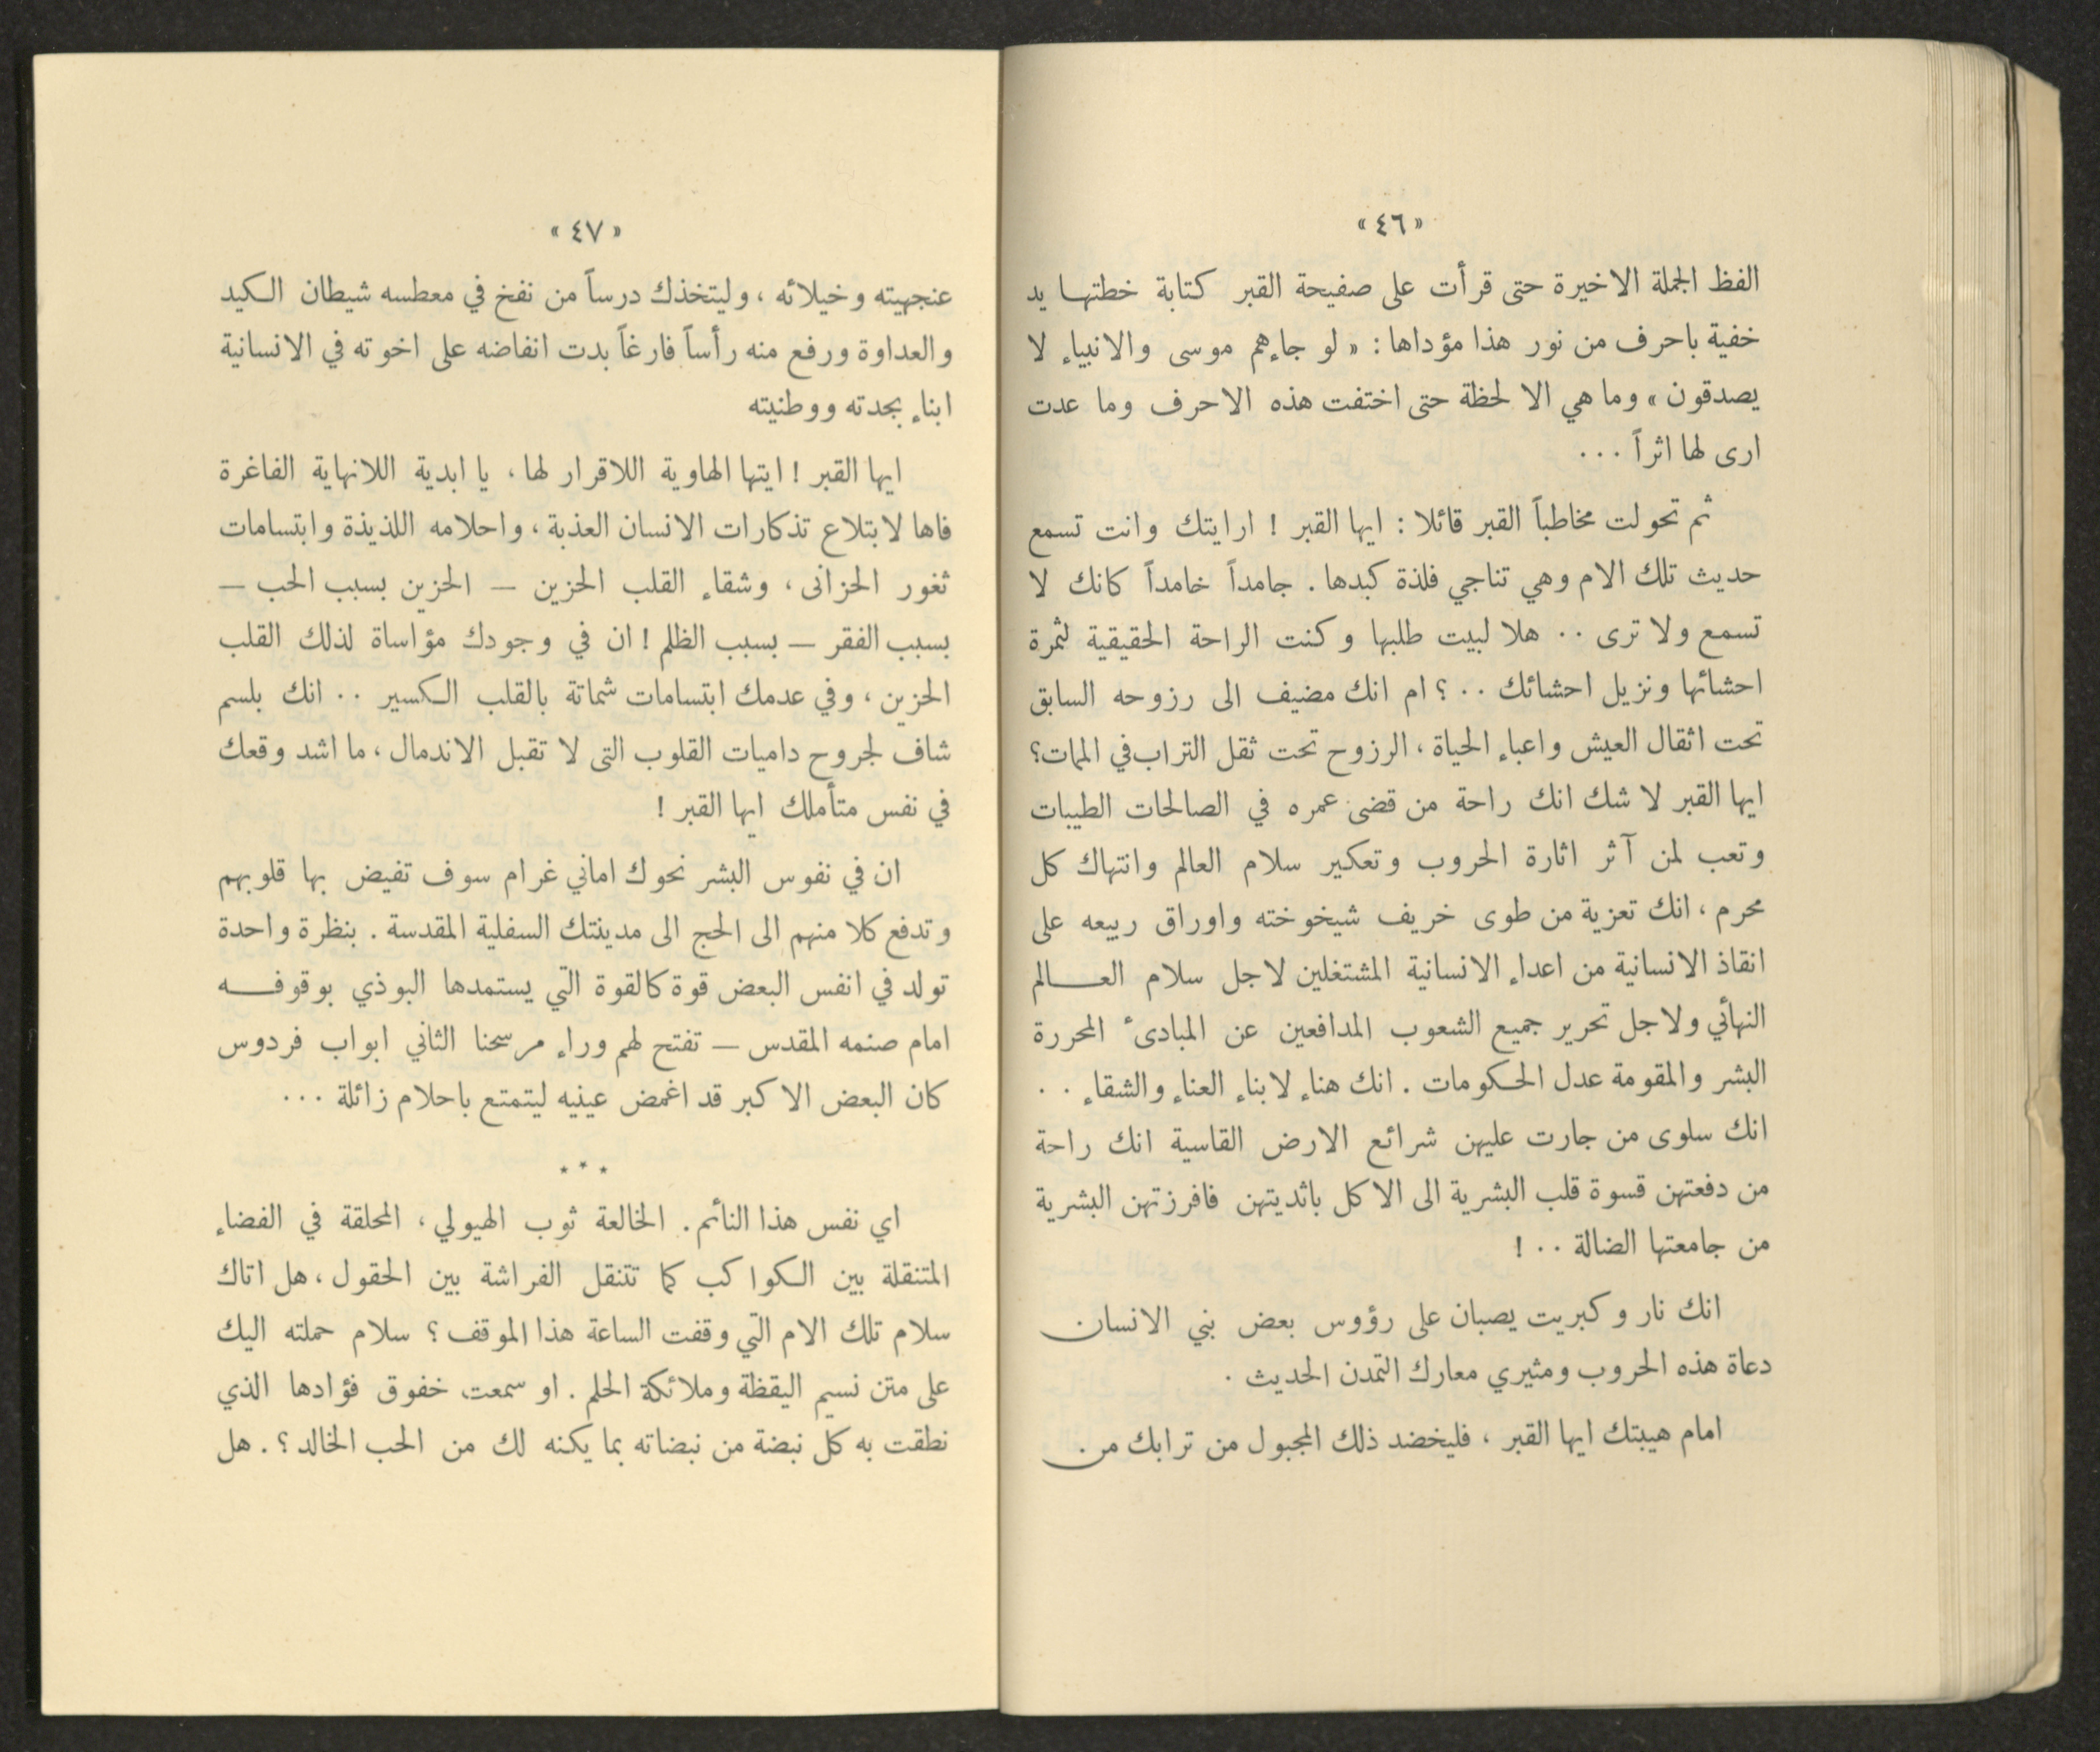 «٤٦»
الفظ الجملة الاخيرة حتى قرأت على صفيحة القبر كتابة خطتها يد
خفية باحرف من نور هذا مؤداها : « لو جاءهم موسى والانبياء لا
يصدقون » وما هي الا لحظة حتى اختفت هذه الاحرف وما عدت
ارى لها اثراً ...
ثم تحولت مخاطباً القبر قائلا : ايها القبر ! ارايتك وانت تسمع
حديث تلك الام وهي تناجي فلذة كبدها . جامداً خامداً كانك لا
تسمع ولا ترى .. هلا لبيت طلبها وكنت الراحة الحقيقية لثمرة
احشائها ونزيل احشائك .. ؟ ام انك مضيف الى رزوحه السابق
تحت اثقال العيش واعباء الحياة ، الرزوح تحت ثقل التراب في الممات؟
ايها القبر لا شك انك راحة من قضى عمره في الصالحات الطيبات
وتعب لمن آثر اثارة الحروب وتعكير سلام العالم وانتهاك كل
محرم ، انك تعزية من طوى خريف شيخوخته واوراق ربيعه على
انقاذ الانسانية من اعداء الانسانية المشتغلين لاجل سلام العـــالم
النهأني ولاجل تحرير جميع الشعوب المدافعين عن المبادئ المحررة
البشر والمقومة عدل الحكومات . انك هناء لابناء العناء والشقاء ..
انك سلوى من جارت عليهن شرائع الارض القاسية انك راحة
من دفعتهن قسوة قلب البشرية الى الاكل باثديتهن فافرزتهن البشرية
من جامعتها الضالة .. !
انك نار وكبريت يصبان على رؤوس بعض بني الانسان
دعاة هذه الحروب ومثيري معارك التمدن الحديث .
امام هيبتك ايها القبر ، فليخضد ذلك المجبول من ترابك من
«٤٧»
عنجهيته وخيلائه ، وليتخذك درساً من نفخ في معطسه شيطان الكيد
والعداوة ورفع منه رأساً فارغاً بدت انفاضه على اخوته في الانسانية
ابناء بجدته ووطنيته
ايها القبر ! ايتها الهاوية اللاقرار لها ، يا ابدية اللانهاية الفاغرة
فاها لابتلاع تذكارات الانسان العذبة ، واحلامه اللذيذة وابتسامات
ثغور الحزانى ، وشقاء القلب الحزين — الحزين بسبب الحب —
بسبب الفقر — بسبب الظلم ! ان في وجودك مؤاساة لذلك القلب
الحزين ، وفي عدمك ابتسامات شماتة بالقلب الكسير .. انك بلسم
شاف لجروح داميات القلوب التى لا تقبل الاندمال ، ما اشد وقعك
في نفس متأملك ايها القبر !
ان في نفوس البشر نحوك اماني غرام سوف تفيض بها قلوبهم
وتدفع كلا منهم الى الحج الى مدينتك السفلية المقدسة . بنظرة واحدة
تولد في انفس البعض قوة كالقوة التي يستمدها البوذي بوقوفــه
امام صنمه المقدس — تفتح لهم وراء مرسحنا الثاني ابواب فردوس
كان البعض الاكبر قد اغمض عينيه ليتمتع باحلام زائلة ...
* * *
اي نفس هذا النأئم . الخالعة ثوب الهيولي ، المحلقة في الفضاء
المتنقلة بين الكواكب كما تتنقل الفراشة بين الحقول ، هل اتاك
سلام تلك الام التي وقفت الساعة هذا الموقف ؟ سلام حملته اليك
على متن نسيم اليقظة وملائكة الحلم . او سمعت خفوق فؤادها الذي
نطقت به كل نبضة من نبضاته بما يكنه لك من الحب الخالد ؟ . هل